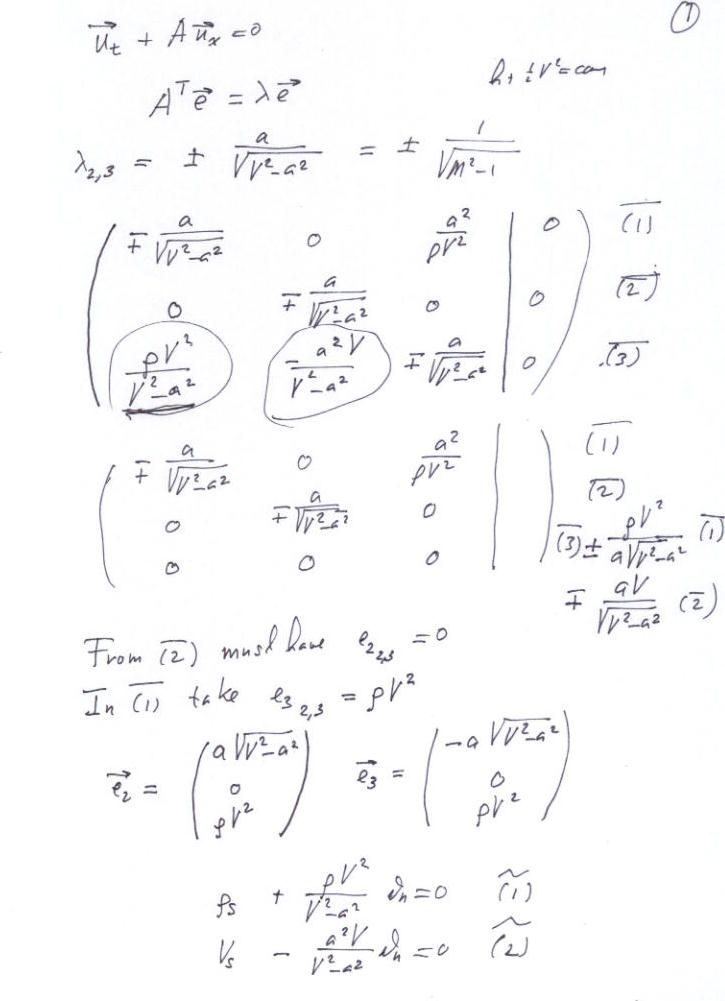 ①
u⃗_t + A u⃗_x = 0
h + ½V² = con
Aᵀe⃗ = λe⃗
λ_{2,3} = ± a/√(V²-a²) = ± 1/√(M²-1)
( ∓ a/√(V²-a²)   0   a²/(ρV²) | 0 )   (1)
( 0   ∓ a/√(V²-a²)   0 | 0 )   (2)
( ρV²/(V²-a²)   - a²V/(V²-a²)   ∓ a/√(V²-a²) | 0 )   (3)
( ∓ a/√(V²-a²)   0   a²/(ρV²) | )   (1)
( 0   ∓ a/√(V²-a²)   0 | )   (2)
( 0   0   0 | )   (3) ± ρV²/(a√(V²-a²)) (1)
∓ aV/√(V²-a²) (2)
From (2) must have e_{2 2,3} = 0
In (1) take e_{3 2,3} = ρV²
e⃗₂ = ( a√(V²-a²)   0   ρV² )   e⃗₃ = ( -a√(V²-a²)   0   ρV² )
ρ_s + ρV²/(V²-a²) ϑ_n = 0   (1)
V_s - a²V/(V²-a²) ϑ_n = 0   (2)